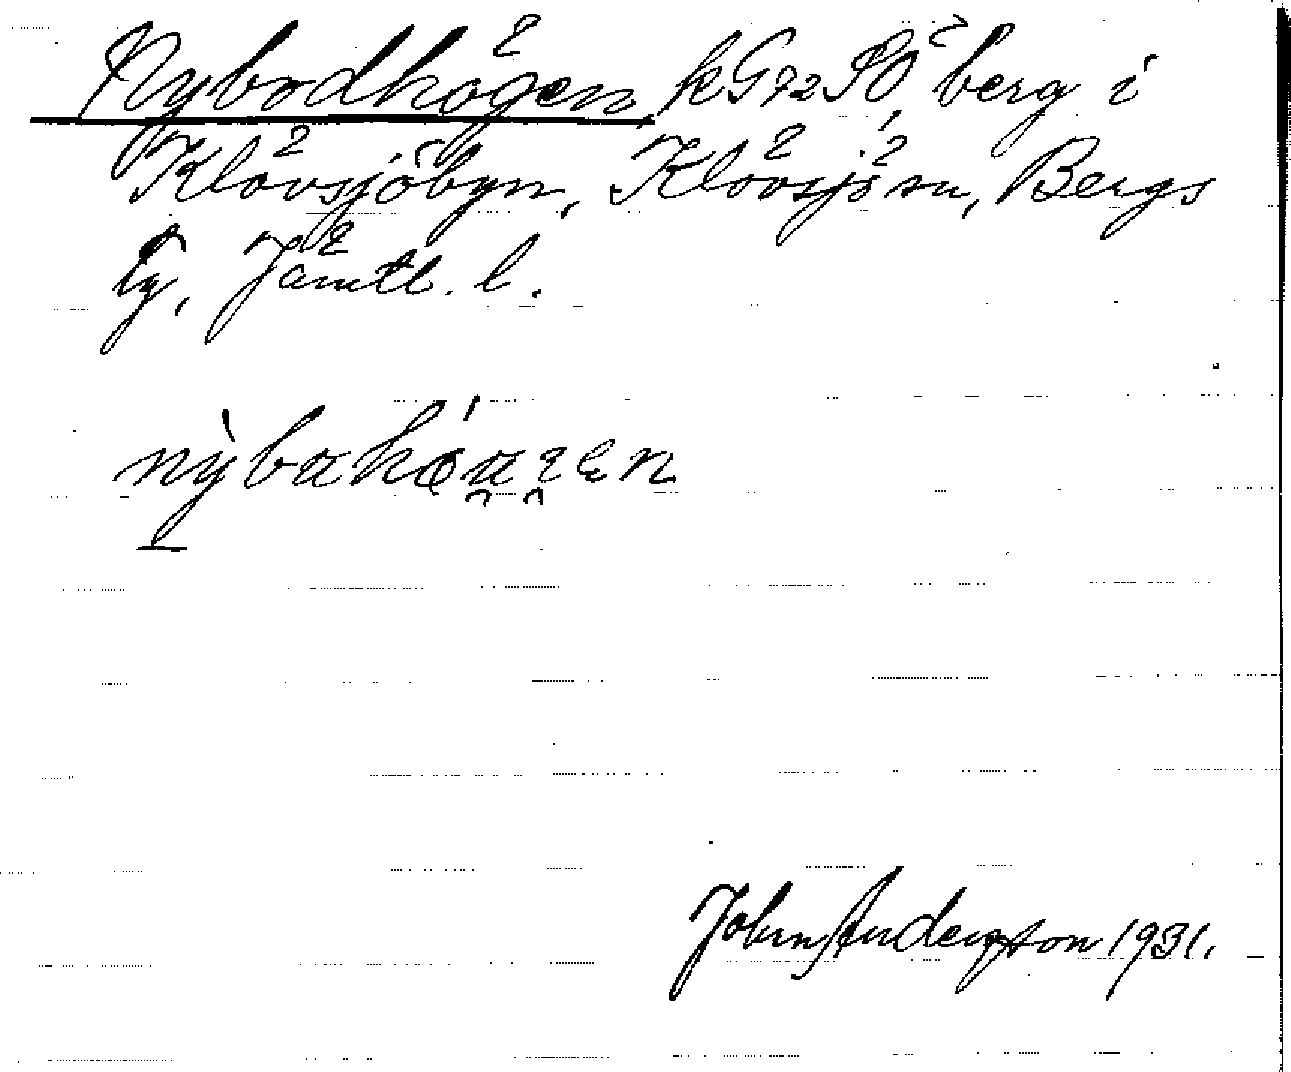 Nybodhögen kG72SÖ, berg i
Klövsjöbyn, Klövsjö sn, Bergs
tg, Jämtl. l.
John Andersson 1931.